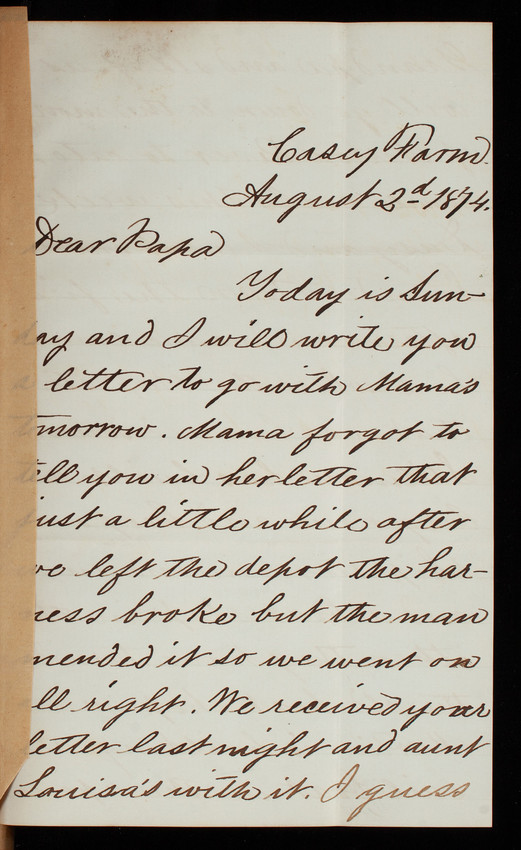 Casey Farm.
August 2d 1874.
Dear Papa
Today is Sun-
day and I will write you
a letter to go with Mama's
tmorrow. Mama forgot to
tell you in her letter that
just a little while after
we left the depot the har-
ness broke but the man
mended it so we went on
all right. We received your
letter last night and aunt
Louisa's with it. I guess